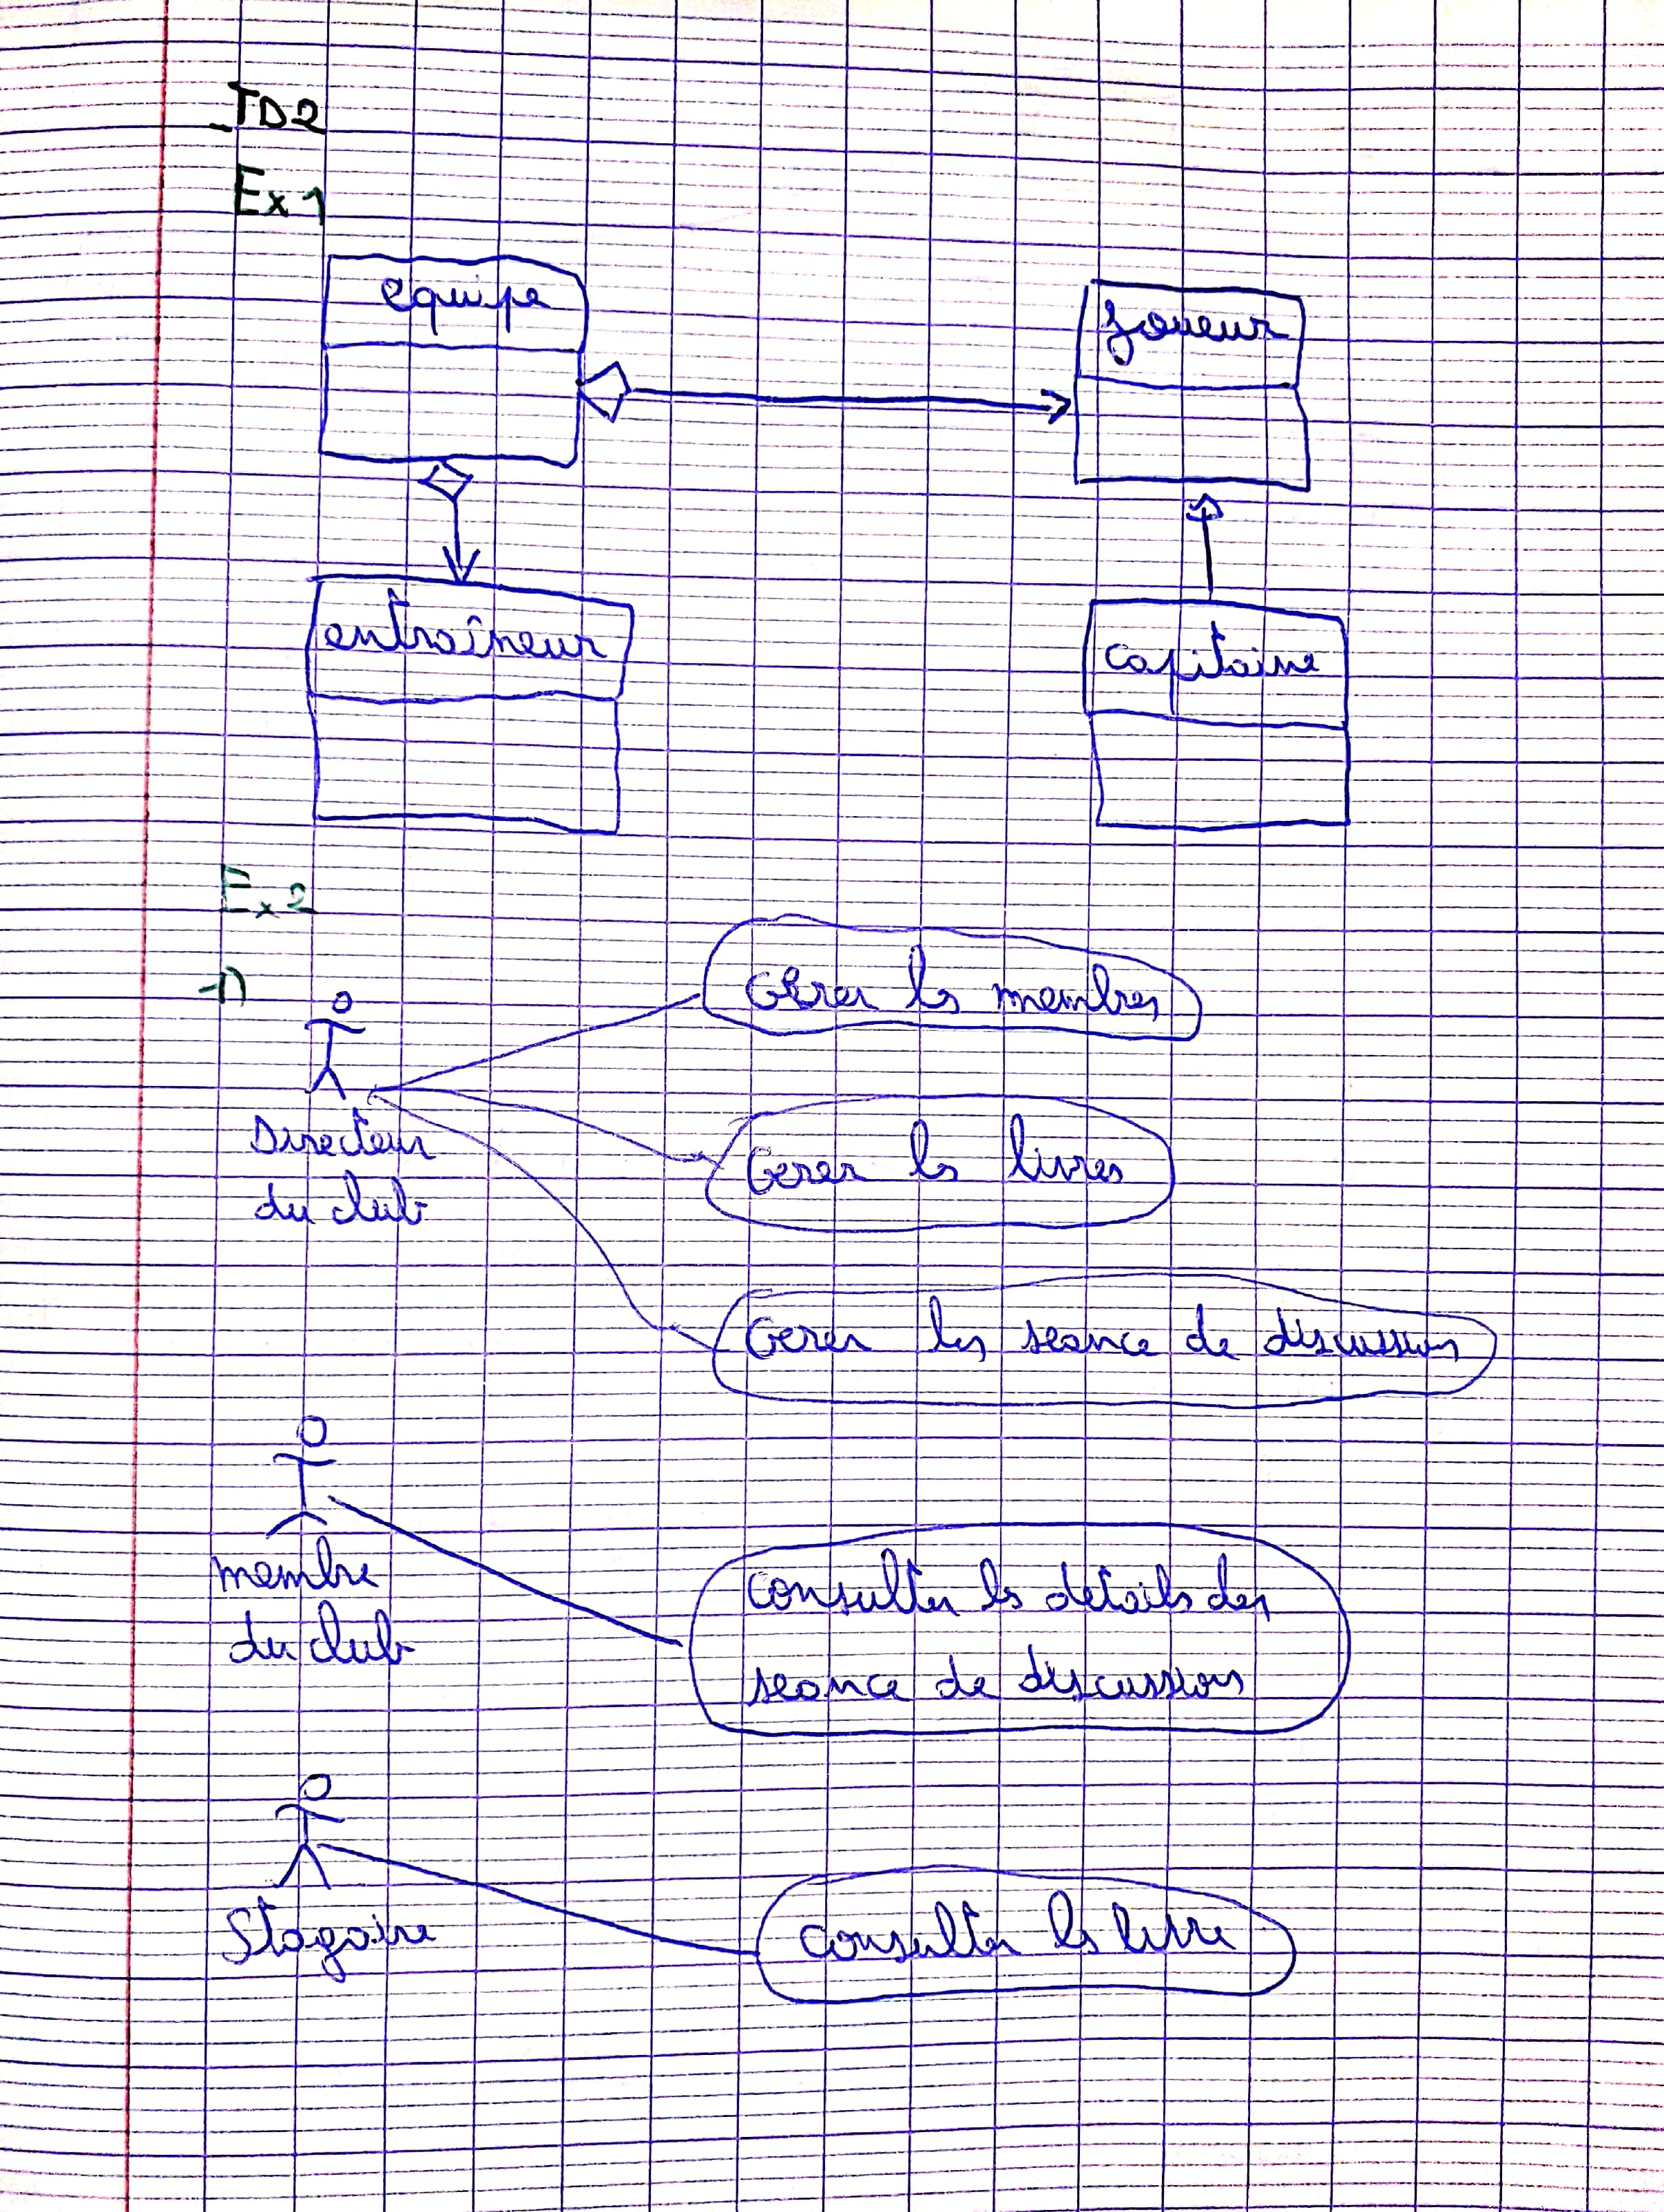 TD2
Ex 1
equipe
joueur
entraîneur
capitaine
Ex 2
1)
Gérer les membres
Directeur
du club
Gerer les livres
Gerer les seance de discussions
membre
du club
consulter les details des
seance de discussions
Stagaire
consulter les livre